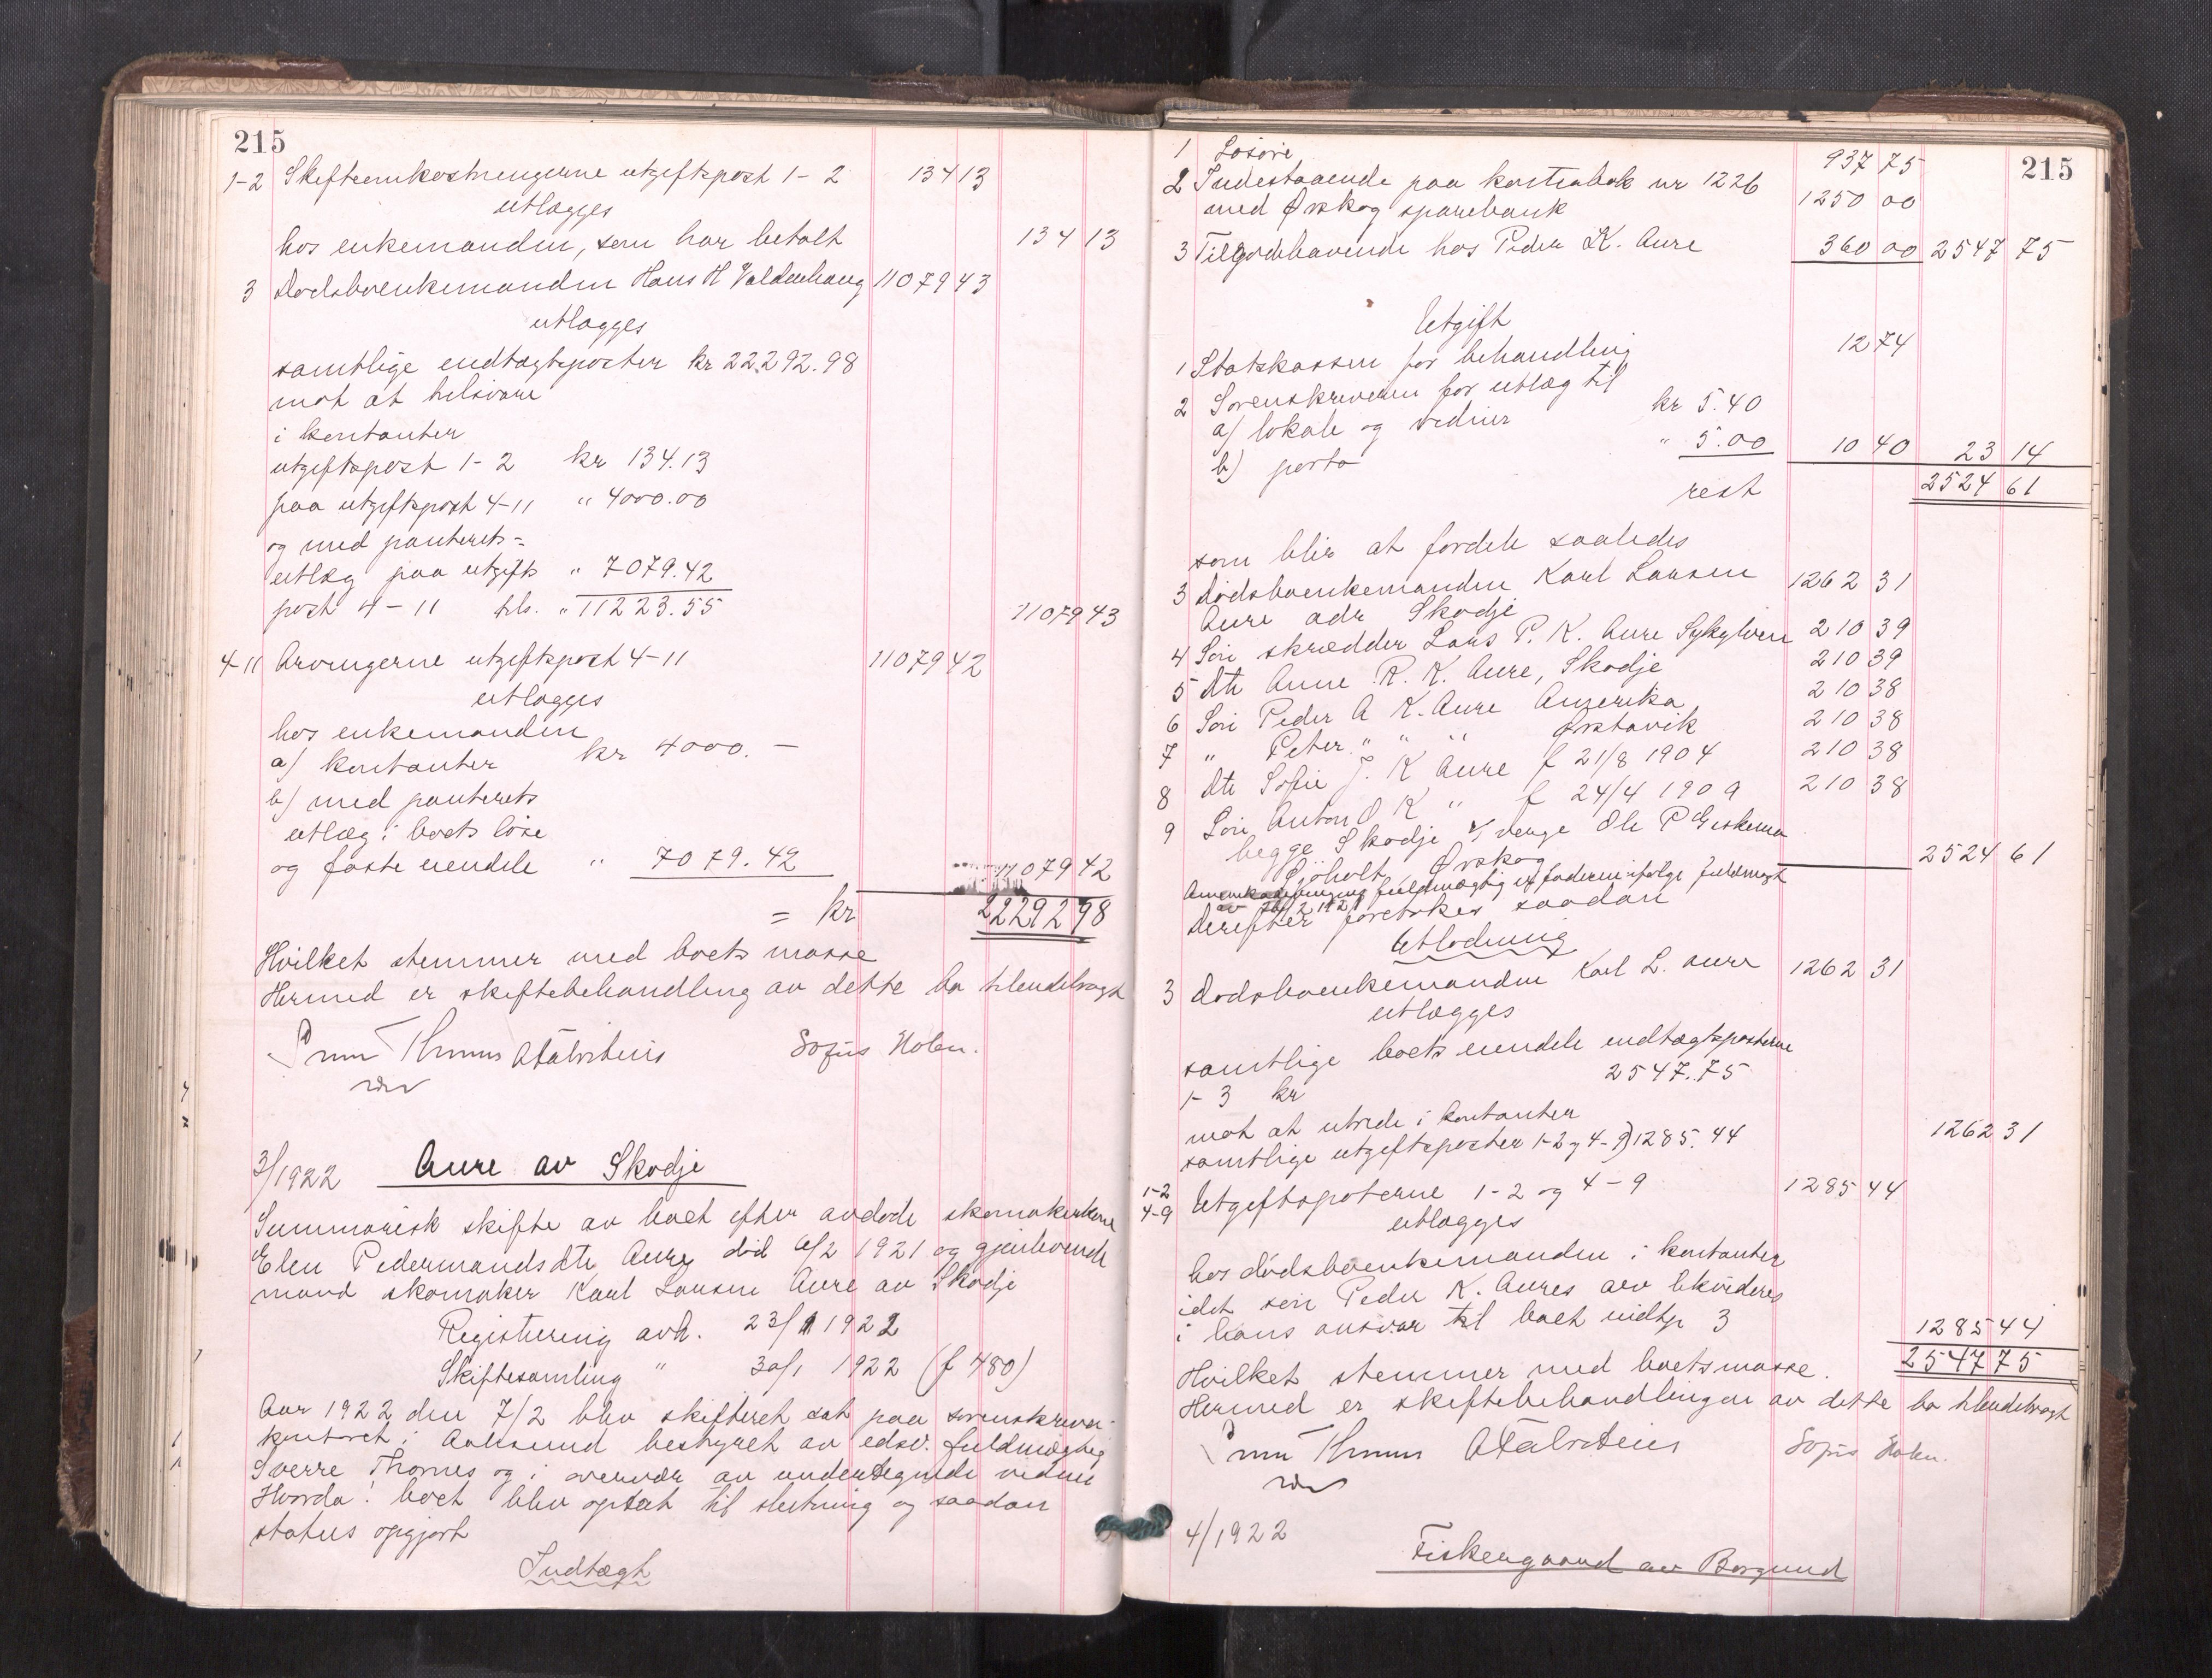 215
1-2 Skifteomkostningerne utgiftspost 1-2 134 13
utlægges
hos enkemanden, som har betalt 134 13
3 Dødsboenkemanden Hans H Valderhaug 11079 43
utlægges
samtlige indtægtsposter kr 22292.98
mot at tilsvare
i kontanter
utgiftspost 1-2 kr 134.13
paa utgiftspost 4-11 " 4000.00
og med panterets=
utlæg paa utgifts " 7079.42
post 4-11 tils. " 11223.55 11079 43
4-11 Arvingerne utgiftspost 4-11 11079 42
utlægges
hos enkemanden
a) kontanter kr 4000.—
b) med panterets
utlæg i boets løse
og faste eiendele " 7079.42 11079 42
= kr 22292 98
Hvilket stemmer med boets masse
Hermed er skiftebehandling av dette bo tilendebragt
Sofus Holen.
3/1922 Aure av Skodje
Summarisk skifte av boet efter avdøde skomakerkone
Elen Pedermandsdtr Aure død 6/2 1921 og gjenlevende
mand skomaker Karl Larsen Aure av Skodje
Registrering avh. 23/1 1922
Skiftesamling " 30/1 1922 (f 480)
Aar 1922 den 7/2 blev skifteret sat paa sorenskriver-
kontoret i Aalesund bestyret av edsv. fuldmægtig
Sverre Thornes og i overvær av undertegnede vidner
Hvorda: boet blev optat til slutning og saadan
status opgjort
Indtægt
215
1 Løsøre 937 75
2 Indestaaende paa kontrabok nr 1226
med Ørskog sparebank 1250 00
3 Tilgodehavende hos Peder K. Aure 360 00 2547 75
Utgift
1 Statskassen for behandling 12 74
2 Sorenskriveren for utlæg til
a) lokale og vidner kr 5.40
b) porto " 5.00 10 40 23 14
rest 2524 61
som blir at fordele saaledes
3 Dødsboenkemanden Karl Larsen 1262 31
Aure adr Skodje
4 Søn skrædder Lars P. K. Aure Sykylven 210 39
5 dtr Anne R. K. Aure, Skodje 210 39
6 Søn Peder A K. Aure Amerika 210 38
7 " Peter " " " Ørstavik 210 38
8 dtr Sofie J. K Aure f 21/8 1904 210 38
9 Søn Anton O K " f 24/4 1909 210 38
begge Skodje v/ verge Ole P
Sjøholt Ørskog 2524 61
fuldmægtig er faderen ifølge fuldmagt
Derefter foretokes saadan
Utlodning
3 Dødsboenkemanden Karl L. Aure 1262 31
utlægges
samtlige boets eiendele indtægtsposterne
1-3 kr 2547.75
mot at utrede i kontanter
samtlige utgiftsposter 1-2 og 4-9) 1285.44 1262 31
1-2
4-9 Utgiftsposterne 1-2 og 4-9 1285 44
utlægges
hos dødsboenkemanden i kontanter
idet søn Peder K. Aures arv likvideres
i hans ansvar til boet indtp 3 1285 44
Hvilket stemmer med boets masse. 2547 75
Hermed er skiftebehandlingen av dette bo tilendebragt
Sofus Holen.
4/1922
Fiskergaard av Borgund